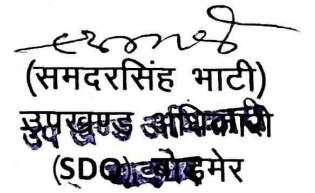 (समदरसिंह भाटी)
उपखण्ड अधिकारी
(SDO) बाड़मेर